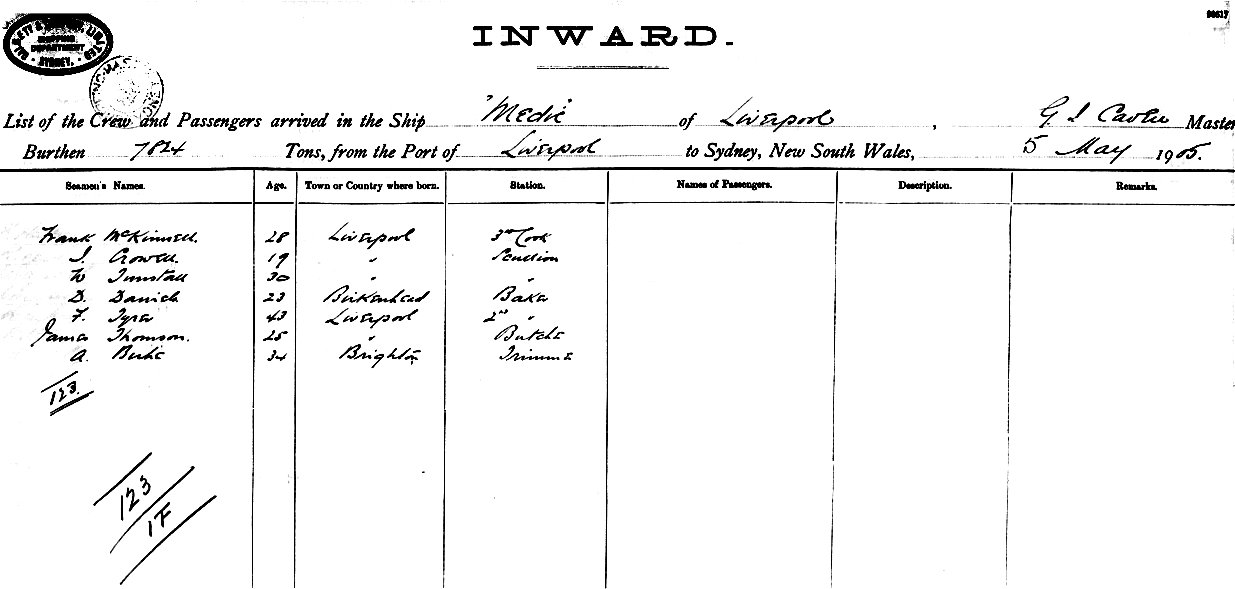 INWARD.
List of the Crew and Passengers arrived in the Ship "Medic" of Liverpool, G J Carter Master
Burthen 7824 Tons, from the Port of Liverpool to Sydney, New South Wales, 5 May 1905.
Seamen's Names. Age. Town or Country where born. Station. Names of Passengers. Description. Remarks.
Frank McKinnell. 28 Liverpool 3rd Cook
J. Crowell. 19 " Scullion
W Tunstall 30 "
D. 23 Birkenhead Baker
F. Tyrer 43 Liverpool 2nd "
James Thomson. 25 " Butcher
A. Burke 34 Brighton Trimmer
123
123
1F